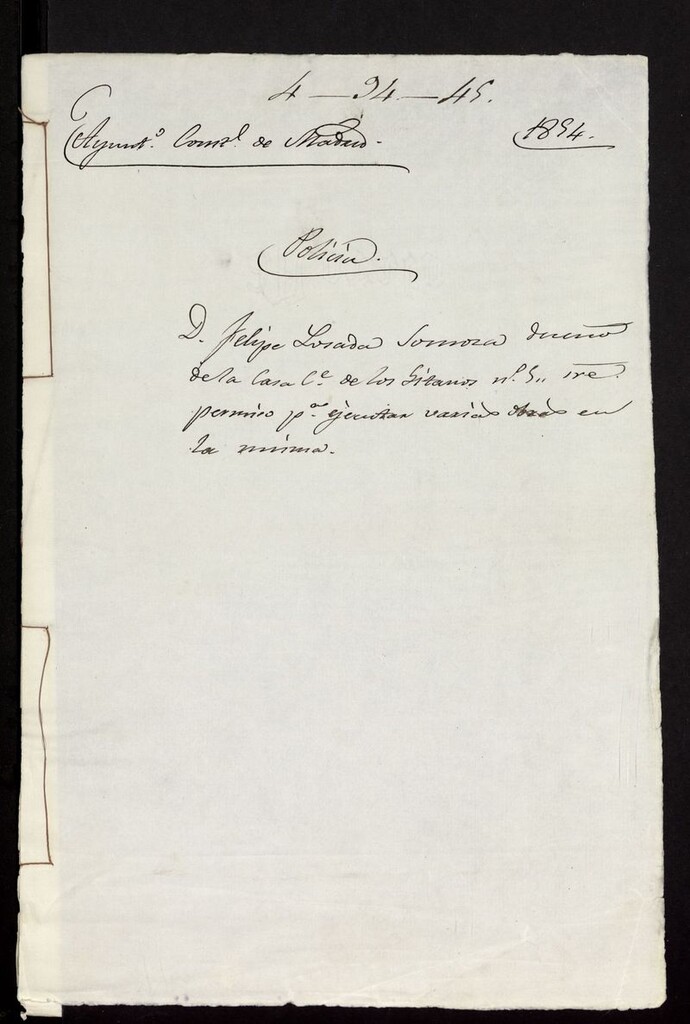 4 — 34 — 45.
Ayunt.º Const.l de Madrid.
1854.
Policia.
D. Felipe Losada Somoza dueño
de la Casa C.e de los Gitanos n.º 5,,
permiso p.a ejecutar varias obras en
la misma.